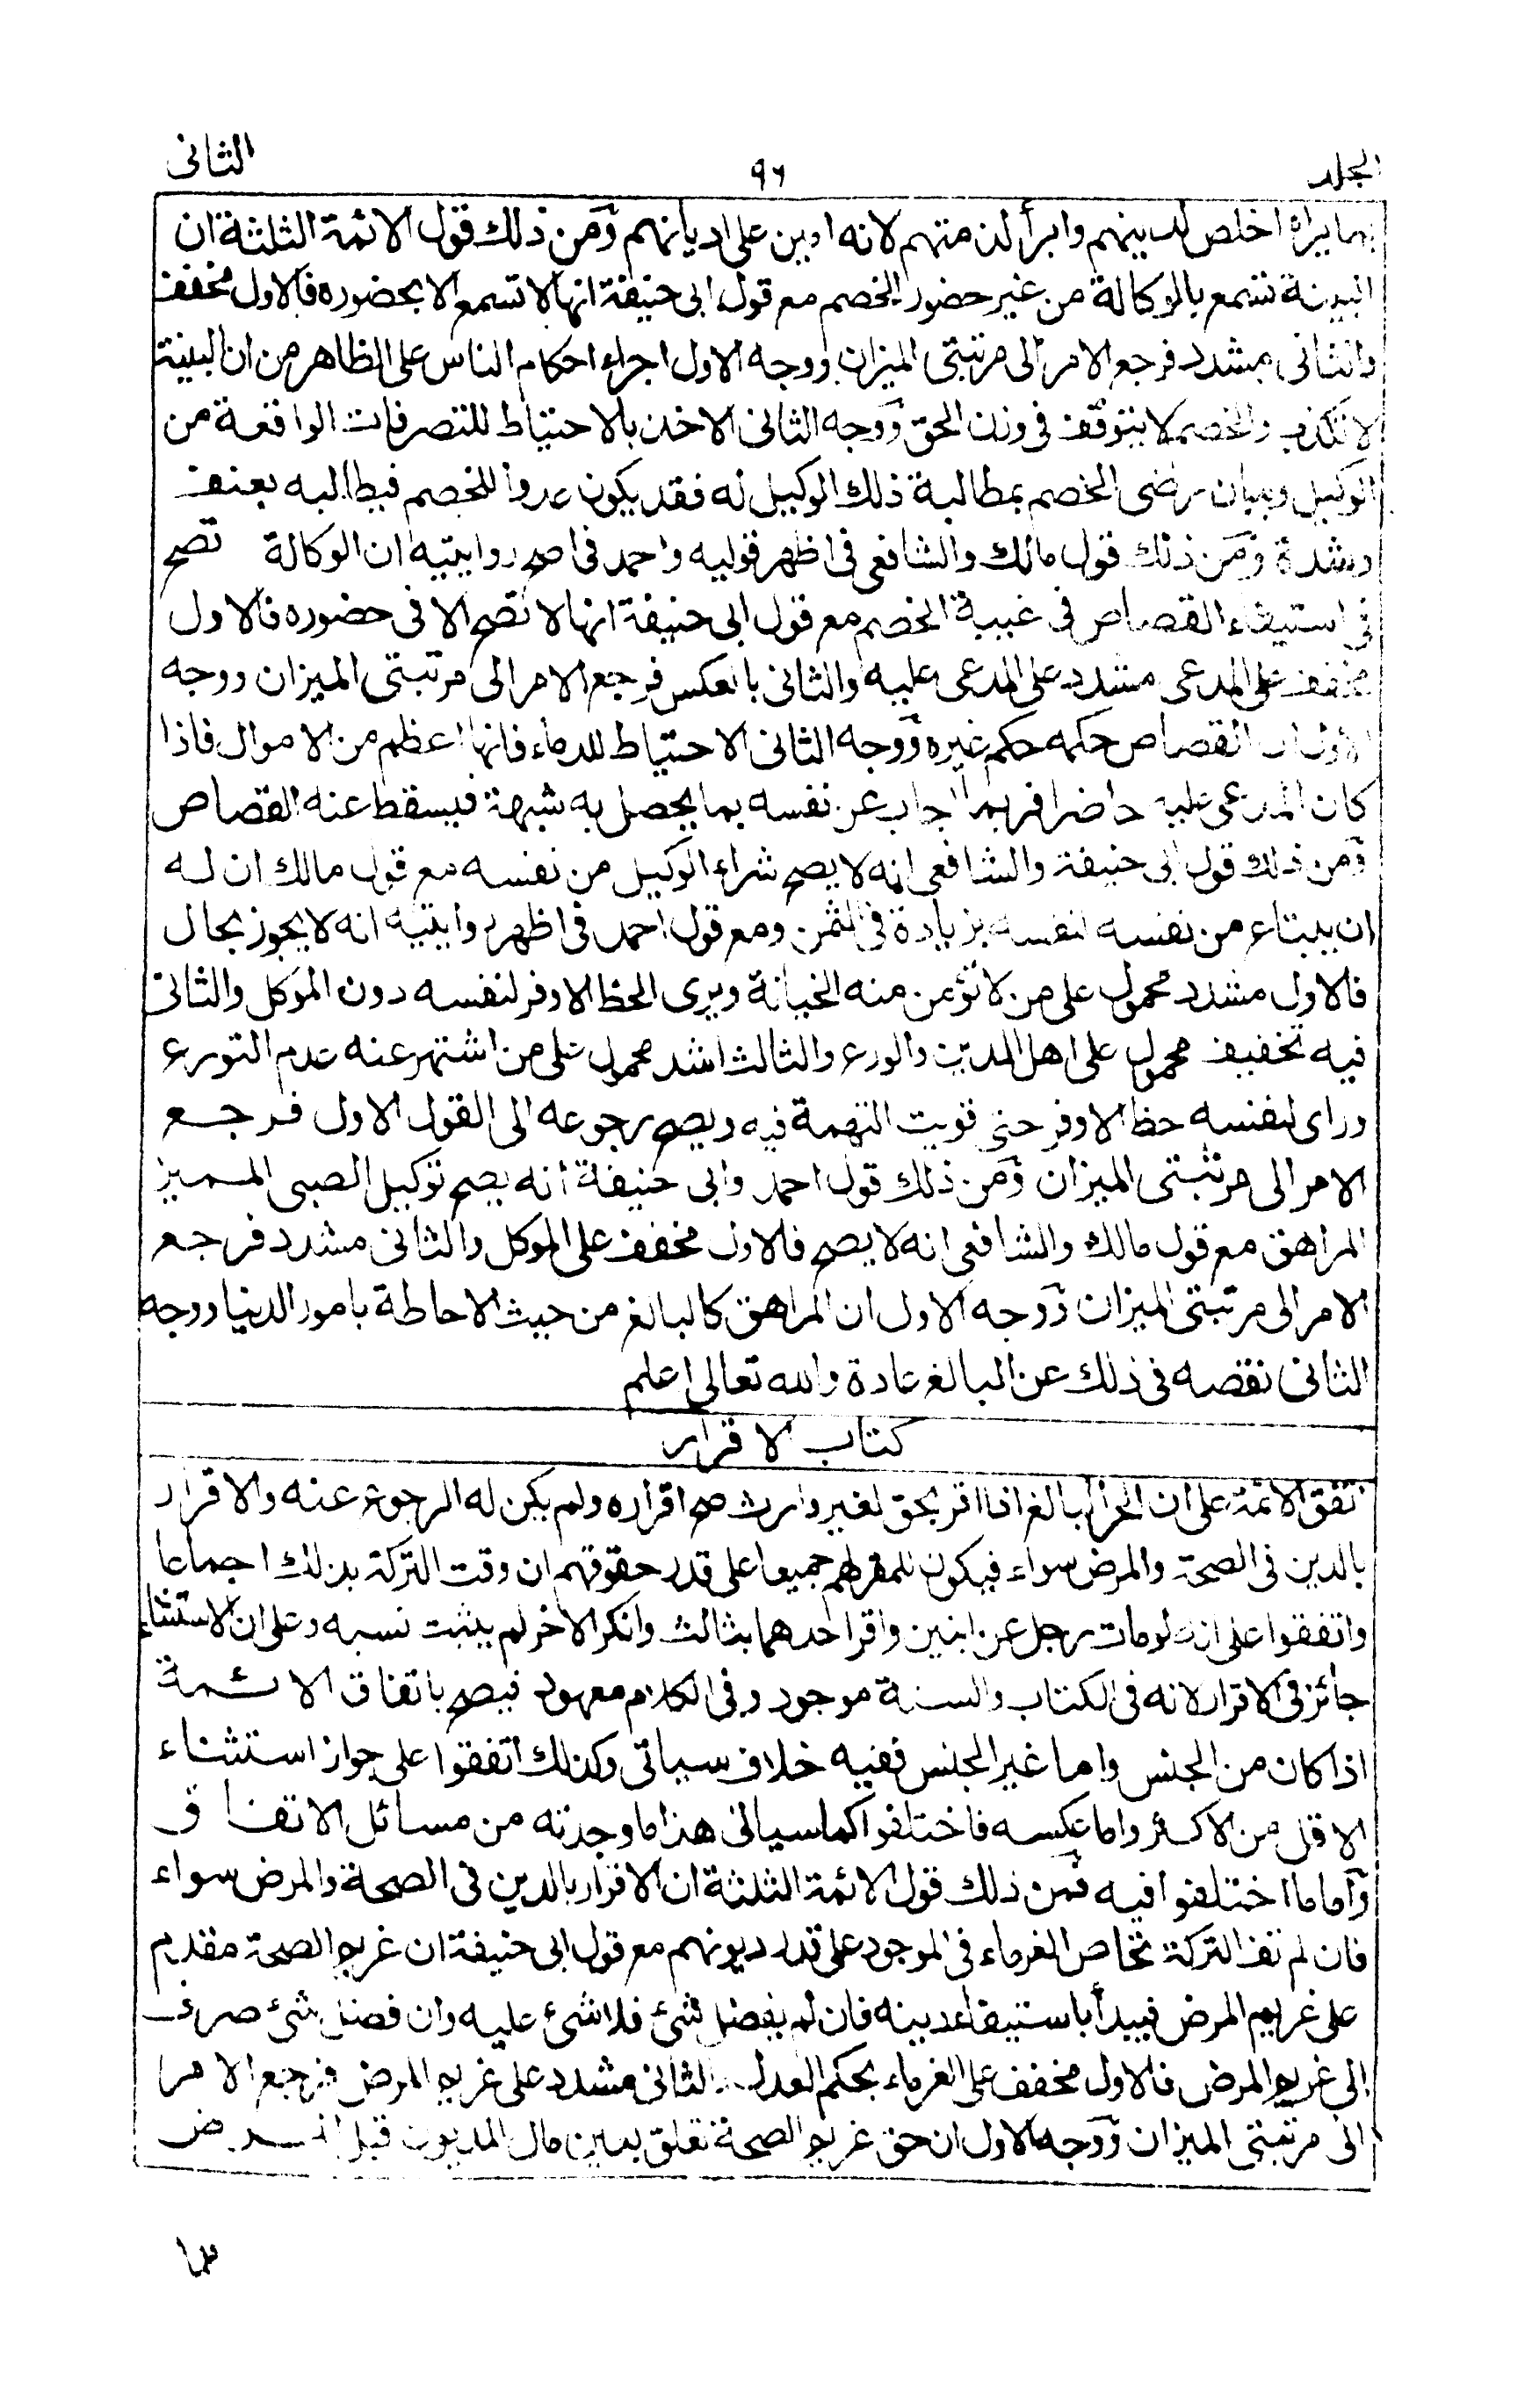 المجلد
٩٦
الثانى
بما يراه اخلص لدينهم وابرأ لذمتهم لانه امين على اديانهم ومن ذلك قول الائمة الثلثة ان
البينة تسمع بالوكالة من غير حضور الخصم مع قول ابى حنيفة انها لا تسمع الا بحضوره فالاول مخفف
والثانى مشدد فرجع الامر الى مرتبتى الميزان ووجه الاول اجراء احكام الناس على الظاهر من ان البينة
لا تكذب والخصم لا يتوقف فى وزن الحق ووجه الثانى الاخذ بالاحتياط للتصرفات الواقعة من
الوكيل وبيان رضى الخصم بمطالبة ذلك الوكيل له فقد يكون عدوا للخصم فيطالبه بعنف
وشدة ومن ذلك قول مالك والشافعى فى اظهر قوليه واحمد فى اصح روايتيه ان الوكالة تصح
فى استيفاء القصاص فى غيبة الخصم مع قول ابى حنيفة انها لا تصح الا فى حضوره فالاول
مخفف على المدعى مشدد على المدعى عليه والثانى بالعكس فرجع الامر الى مرتبتى الميزان ووجه
الاول ان القصاص حكمه حكم غيره ووجه الثانى الاحتياط للدماء فانها اعظم من الاموال فاذا
كان المدعى عليه حاضرا فربما اجاب عن نفسه بما يحصل به شبهة فيسقط عنه القصاص
ومن ذلك قول ابى حنيفة والشافعى انه لا يصح شراء الوكيل من نفسه مع قول مالك ان له
ان يبتاع من نفسه لنفسه بزيادة فى الثمن ومع قول احمد فى اظهر روايتيه انه لا يجوز بحال
فالاول مشدد محمول على من لا تؤمن منه الخيانة ويرى الحظ الاوفر لنفسه دون الموكل والثانى
فيه تخفيف محمول على اهل الدين والورع والثالث اشد محمول على من اشتهر عنه عدم التورع
وراى لنفسه حظ الاوفر حتى قويت التهمة فيه ويصح رجوعه الى القول الاول فرجع
الامر الى مرتبتى الميزان ومن ذلك قول احمد وابى حنيفة انه يصح توكيل الصبى المميز
المراهق مع قول مالك والشافعى انه لا يصح فالاول مخفف على الموكل والثانى مشدد فرجع
الامر الى مرتبتى الميزان ووجه الاول ان المراهق كالبالغ من حيث الاحاطة بامور الدنيا ووجه
الثانى نقصه فى ذلك عن البالغ عادة والله تعالى اعلم
كتاب الاقرار
اتفق الائمة على ان الحر البالغ اذا اقر بحق لغير وارث صح اقراره ولم يكن له الرجوع عنه والاقرار
بالدين فى الصحة والمرض سواء فيكون للمقر لهم جميعا على قدر حقوقهم ان وقت التركة بذلك اجماعا
واتفقوا على انه لو مات رجل عن ابنين واقر احدهما بثالث وانكر الاخر لم يثبت نسبه وعلى ان الاستثناء
جائز فى الاقرار لانه فى الكتاب والسنة موجود وفى الكلام معهود فيصح باتفاق الائمة
اذا كان من الجنس واما غير الجنس ففيه خلاف سياتى وكذلك اتفقوا على جواز استثناء
الاقل من الاكثر واما عكسه فاختلفوا كما سياتى هذا ما وجدته من مسائل الاتفاق
وأما ما اختلفوا فيه فمن ذلك قول الائمة الثلثة ان الاقرار بالدين فى الصحة والمرض سواء
فان لم تف التركة تحاص الغرماء فى الموجود على قدر ديونهم مع قول ابى حنيفة ان غريم الصحة مقدم
على غريم المرض فيبدأ باستيفاء دينه فان لم يفضل شئ فلا شئ عليه وان فضل شئ صرف
الى غريم المرض فالاول مخفف على الغرماء بحكم العدل والثانى مشدد على غريم المرض فرجع الامر
الى مرتبتى الميزان ووجه الاول ان حق غريم الصحة تعلق بعين مال المديون قبل المرض